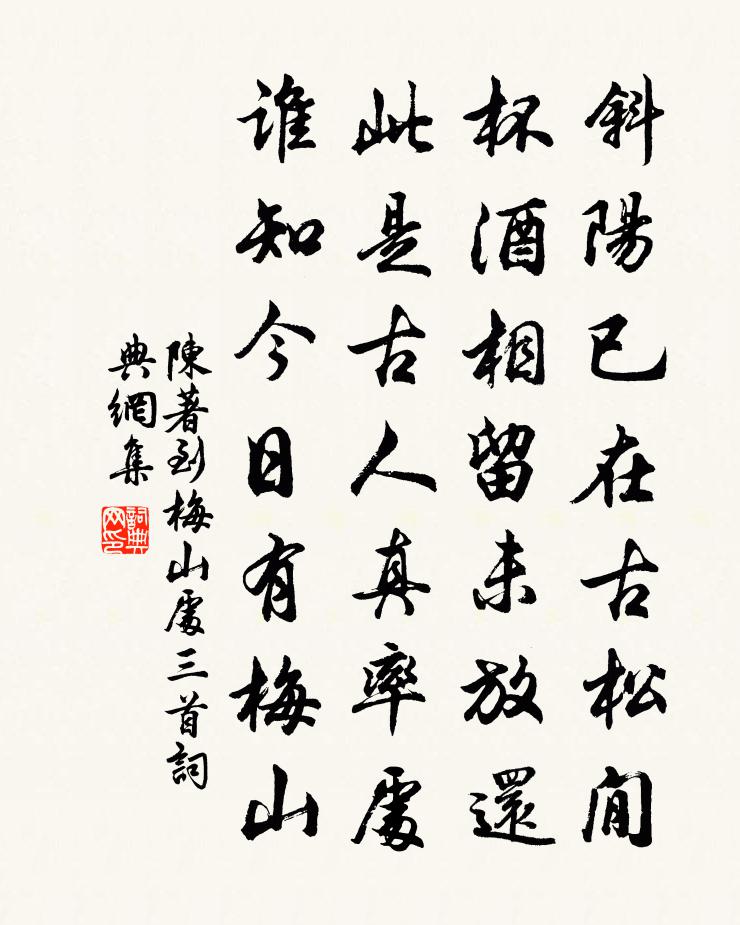 斜陽已在古松間
杯酒相留未放還
此是古人真率處
誰知今日有梅山
陳著到梅山處三首詞
典網集
詞典
网印